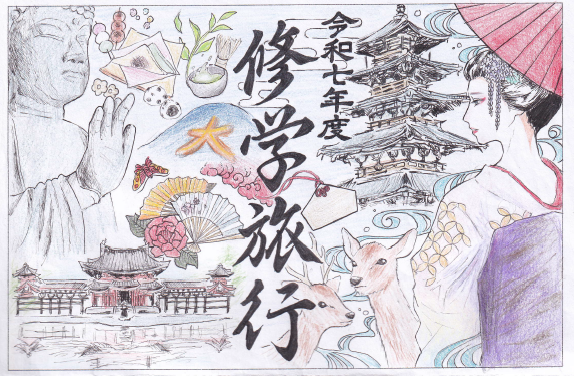 令和七年度
修学旅行
大